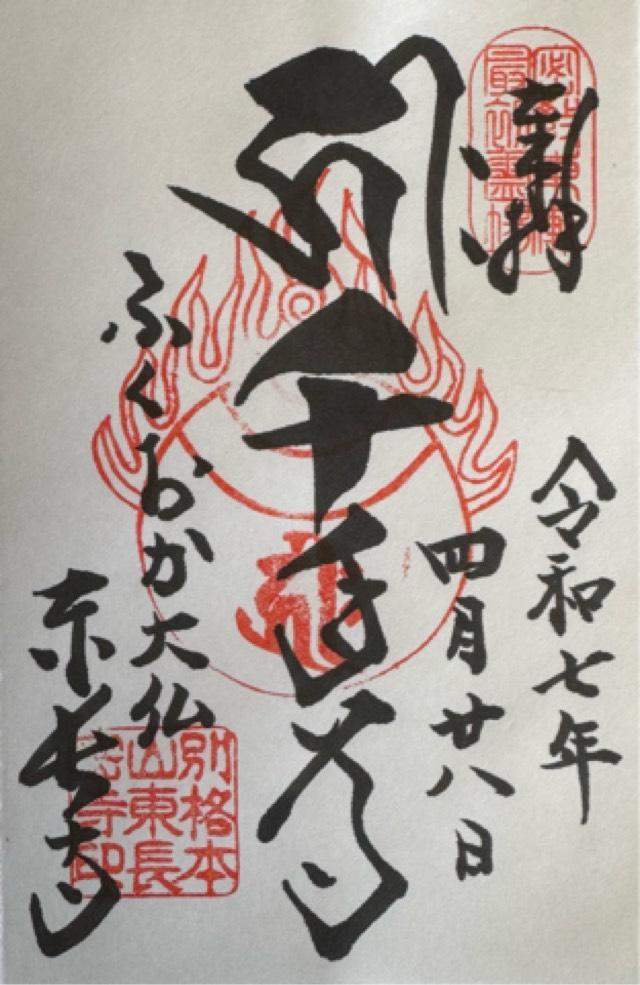 奉拝
令和七年
四月廿八日
千手尊
ふくおか大仏
東長寺
別格本
山東長
密寺印